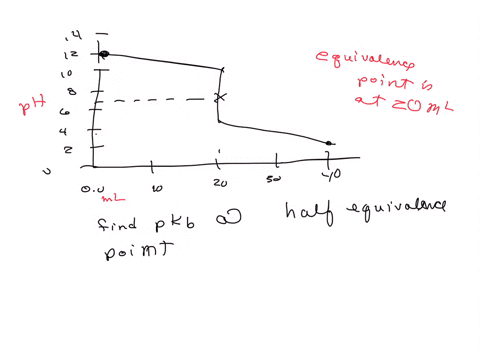 14
12
10
8
6
4
2
0
pH
0.0
10
20
50
40
mL
equivalence
point is
at 20 mL
find pkb @ half equivalence
point